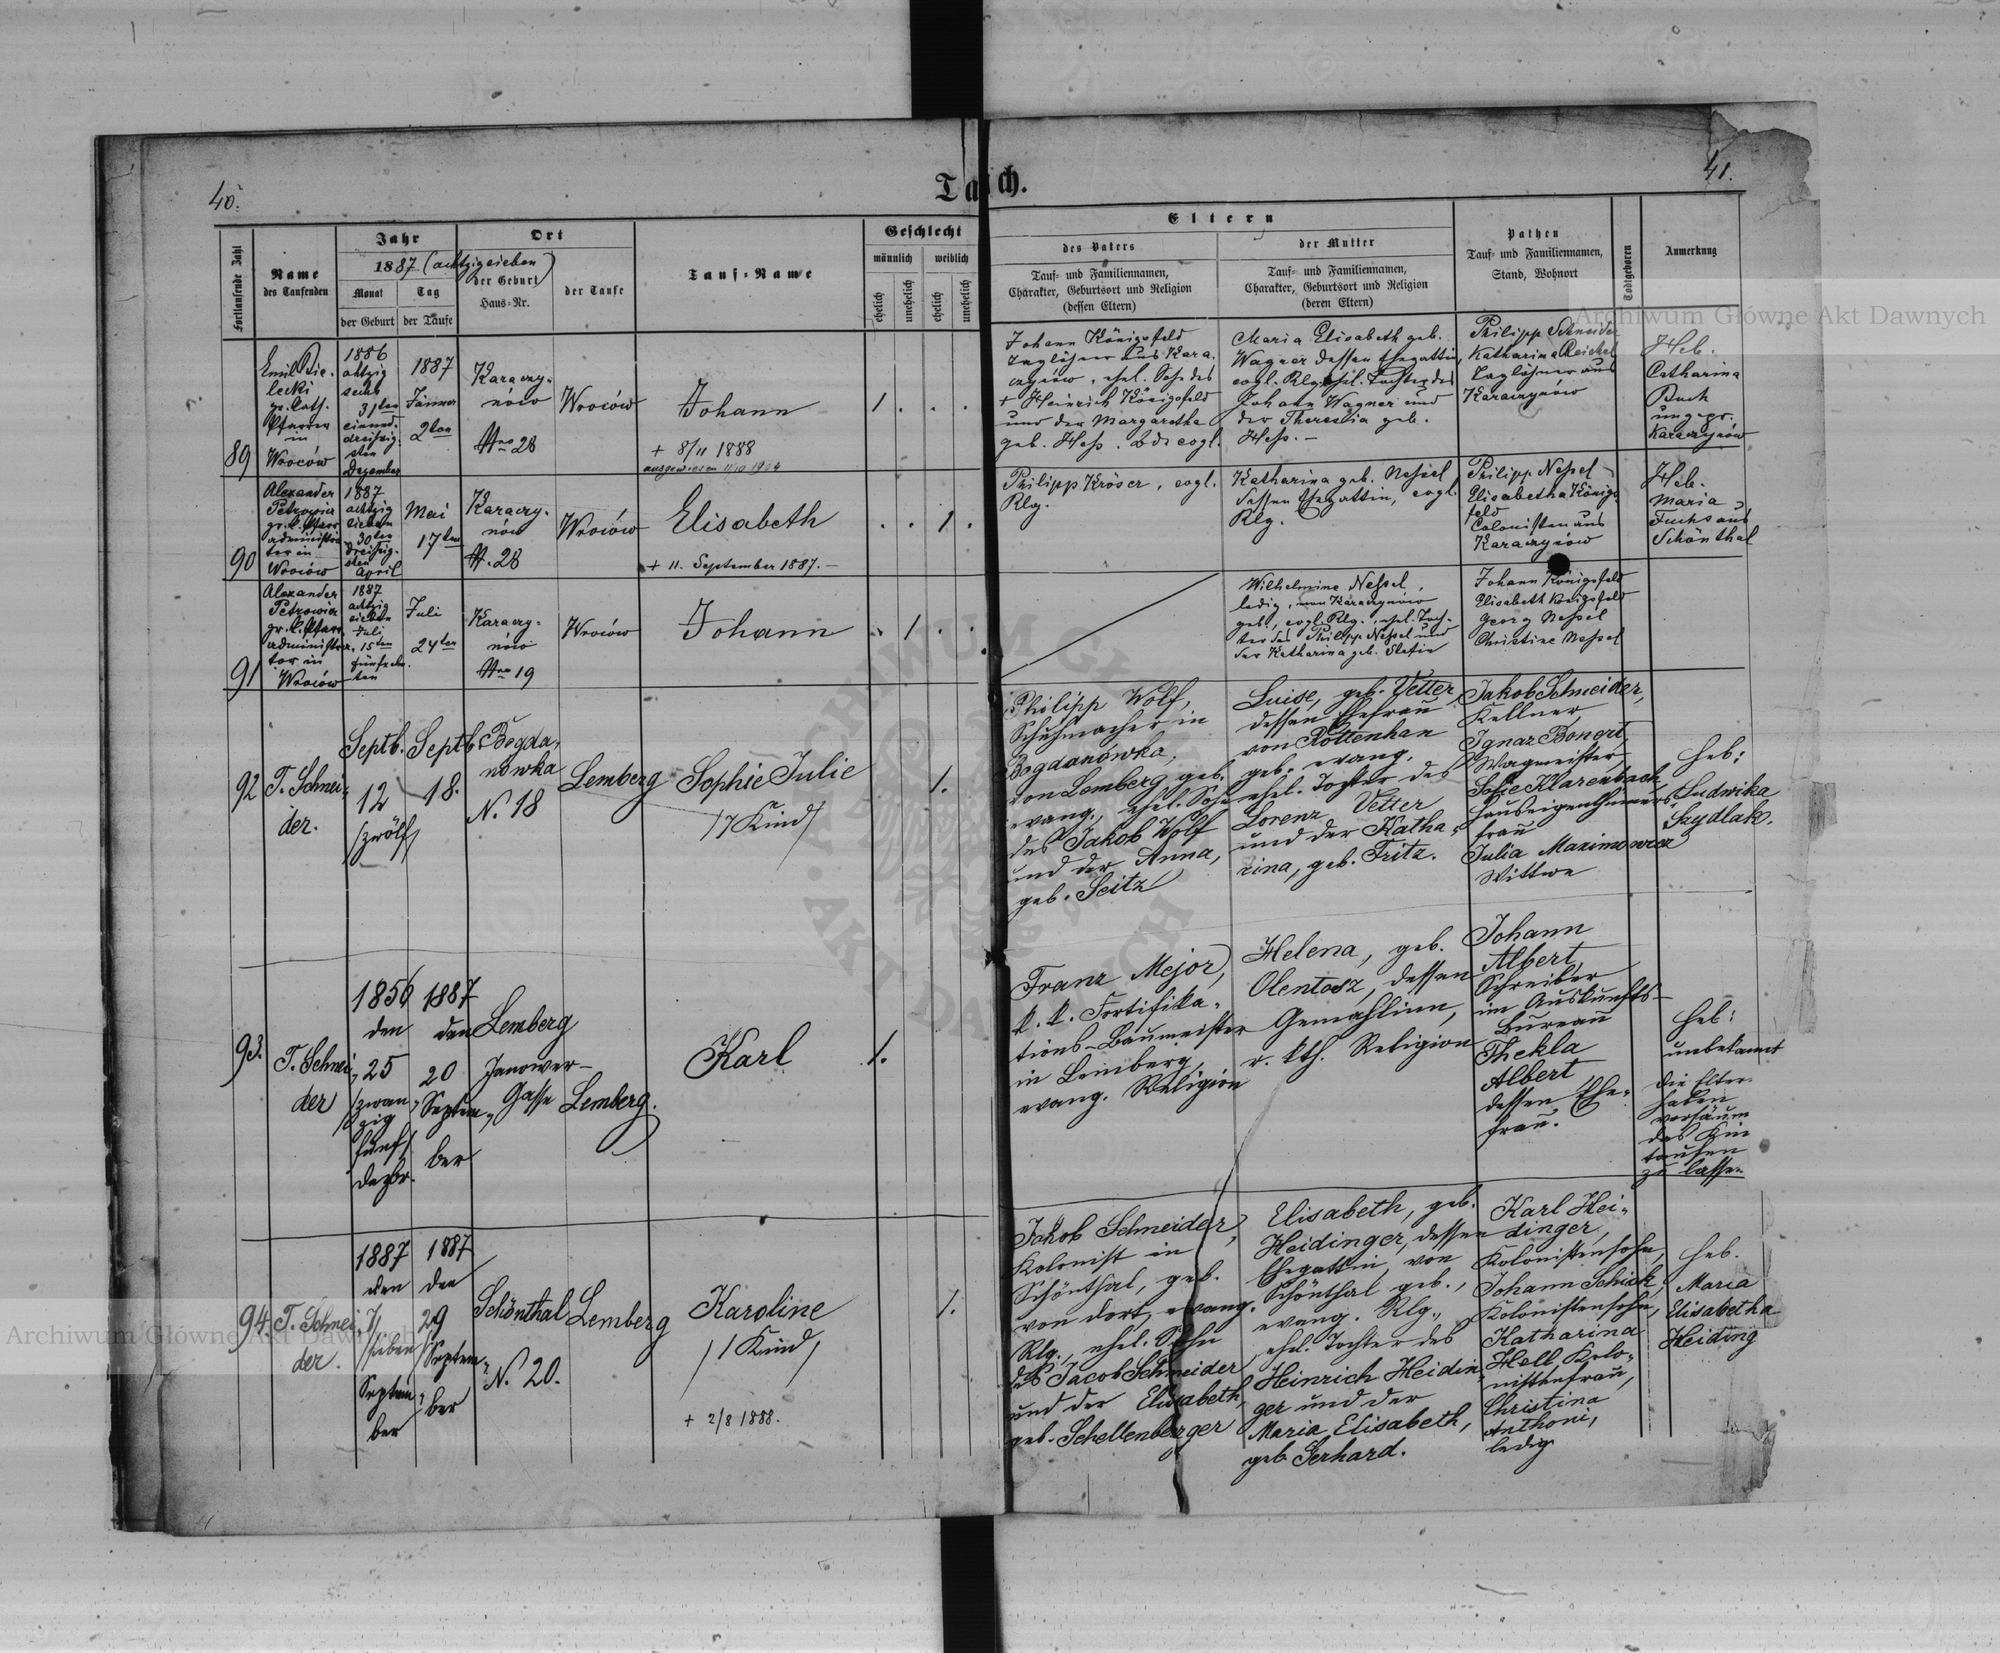 40.
41.
Tauf
ch.
Fortlaufende Zahl
Name
des Taufenden
Jahr
1887 (achtzigsieben)
Monat
Tag
der Geburt
der Taufe
Ort
der Geburt
Haus-Nr.
der Taufe
Tauf-Name
Geschlecht
männlich
weiblich
ehelich
unehelich
ehelich
unehelich
Eltern
des Vaters
Tauf- und Familiennamen,
Charakter, Geburtsort und Religion
(dessen Eltern)
der Mutter
Tauf- und Familiennamen,
Charakter, Geburtsort und Religion
(deren Eltern)
Pathen
Tauf- und Familiennamen,
Stand, Wohnort
Todtgeboren
Anmerkung
89
Emil Bie-
lecki
gr. Cath.
Pfarrer
in
Wroców
1886
achtzig
sechs
31ten
einund-
dreißig-
sten
Dezember
1887
Jänner
2ten
Karaczy-
nów
Nro 28
Wroców
Johann
+ 8/11 1888
1
Johann Königsfeld
Taglöhner aus Kara-
czynów, ehel. Sohn des
+ Heinrich Königsfeld
und der Margaretha
geb. Heß. Beide evgl.
Maria Elisabeth geb.
Wagner dessen Ehegattin,
evgl. Rlg. ehel. Tochter des
Johann Wagner und
der Theresia geb.
Heß. —
Philipp Schneider
Katharina Reichel
Taglöhner aus
Karaczynów
Heb.
Catharina
Buch
ungepr.
Karaczynów
90
Alexander
Petrowicz
gr. k. Pfarr
administra
tor in
Wroców
1887
achtzig
sieben
30ten
dreißig-
sten
April
Mai
17ten
Karaczy-
nów
N. 28
Wroców
Elisabeth
+ 11. September 1887. —
1.
Philipp Kröser, evgl.
Rlg.
Katharina geb. Neßel
dessen Ehegattin, evgl.
Rlg.
Philipp Neßel
Elisabetha Königs-
feld
Colonisten aus
Karaczynów
Heb.
Maria
Fuchs aus
Schönthal
91
Alexander
Petrowicz
gr. k. Pfarr
administra-
tor in
Wroców
1887
achtzig
sieben
Juli
15ten
fünfzehn-
ten
Juli
24ten
Karaczy-
nów
Nro 19
Wroców
Johann
1
Wilhelmine Neßel,
ledig, von Karaczynów
geb., evgl. Rlg., ehel. Toch-
ter des Philipp Neßel und
der Katharina geb. Stefin
Johann Königsfeld
Elisabeth Königsfeld
Georg Neßel
Christine Neßel
92
T. Schnei-
der.
Septb.
12
/zwölf/
Septb.
18.
Bogda-
nówka
N. 18
Lemberg
Sophie Julie
/7 Kind/
1.
Philipp Wolf,
Schuhmacher in
Bogdanówka,
von Lemberg geb.
evang., ehel. Sohn
des Jakob Wolf
und der Anna,
geb. Seitz
Luise, geb. Vetter,
dessen Ehefrau
von Rottenhan
geb. evang.
ehel. Tochter des
Lorenz Vetter
und der Katha-
rina, geb. Fritz.
Jakob Schneider,
Kellner,
Ignaz Bonert,
Wagmeister,
Sofie Klarenbach
Hauseigenthümers-
frau
Julia Maximowicz
Wittwe
Heb:
Ludwika
Szydlak.
93.
T. Schnei-
der
1856
den
25
/zwan-
zig
fünf/
Dezbr.
1887
den
20
Septem-
ber
Lemberg
Janower-
Gasse
Lemberg.
Karl
1.
Franz Mejor,
k. k. Fortifika-
tions-Baumeister
in Lemberg,
evang. Religion
Helena, geb.
Olentosz, dessen
Gemahlinn,
r. kth. Religion
Johann
Albert,
Schreiber
im Auskunfts-
Bureau
Thekla
Albert
dessen Ehe-
frau.
Heb:
unbekannt
Die Elter
haben
versäum
das Kin
taufen
zu lassen
94
T. Schnei-
der.
1887
den
7/
/sieben
Septem-
ber
1887
den
29
Septem-
ber
Schönthal
N. 20.
Lemberg
Karoline
/1 Kind/
+ 2/8 1888.
1.
Jakob Schneider,
Kolonist in
Schönthal, geb.
von dort, evang.
Rlg., ehel. Sohn
des Jacob Schneider
und der Elisabeth,
geb. Schellenberger
Elisabeth, geb.
Heidinger, dessen
Ehegattin, von
Schönthal geb.,
evang. Rlg.,
ehel. Tochter des
Heinrich Heidin-
ger und der
Maria Elisabeth,
geb. Gerhard.
Karl Hei-
dinger,
Kolonistensohn,
Johann Schick,
Kolonistensohn,
Katharina
Hell, Kolo-
nistenfrau,
Christina
Anthoni,
ledig
Heb.
Maria
Elisabetha
Heiding
Archiwum Główne Akt Dawnych
Archiwum Główne Akt Dawnych